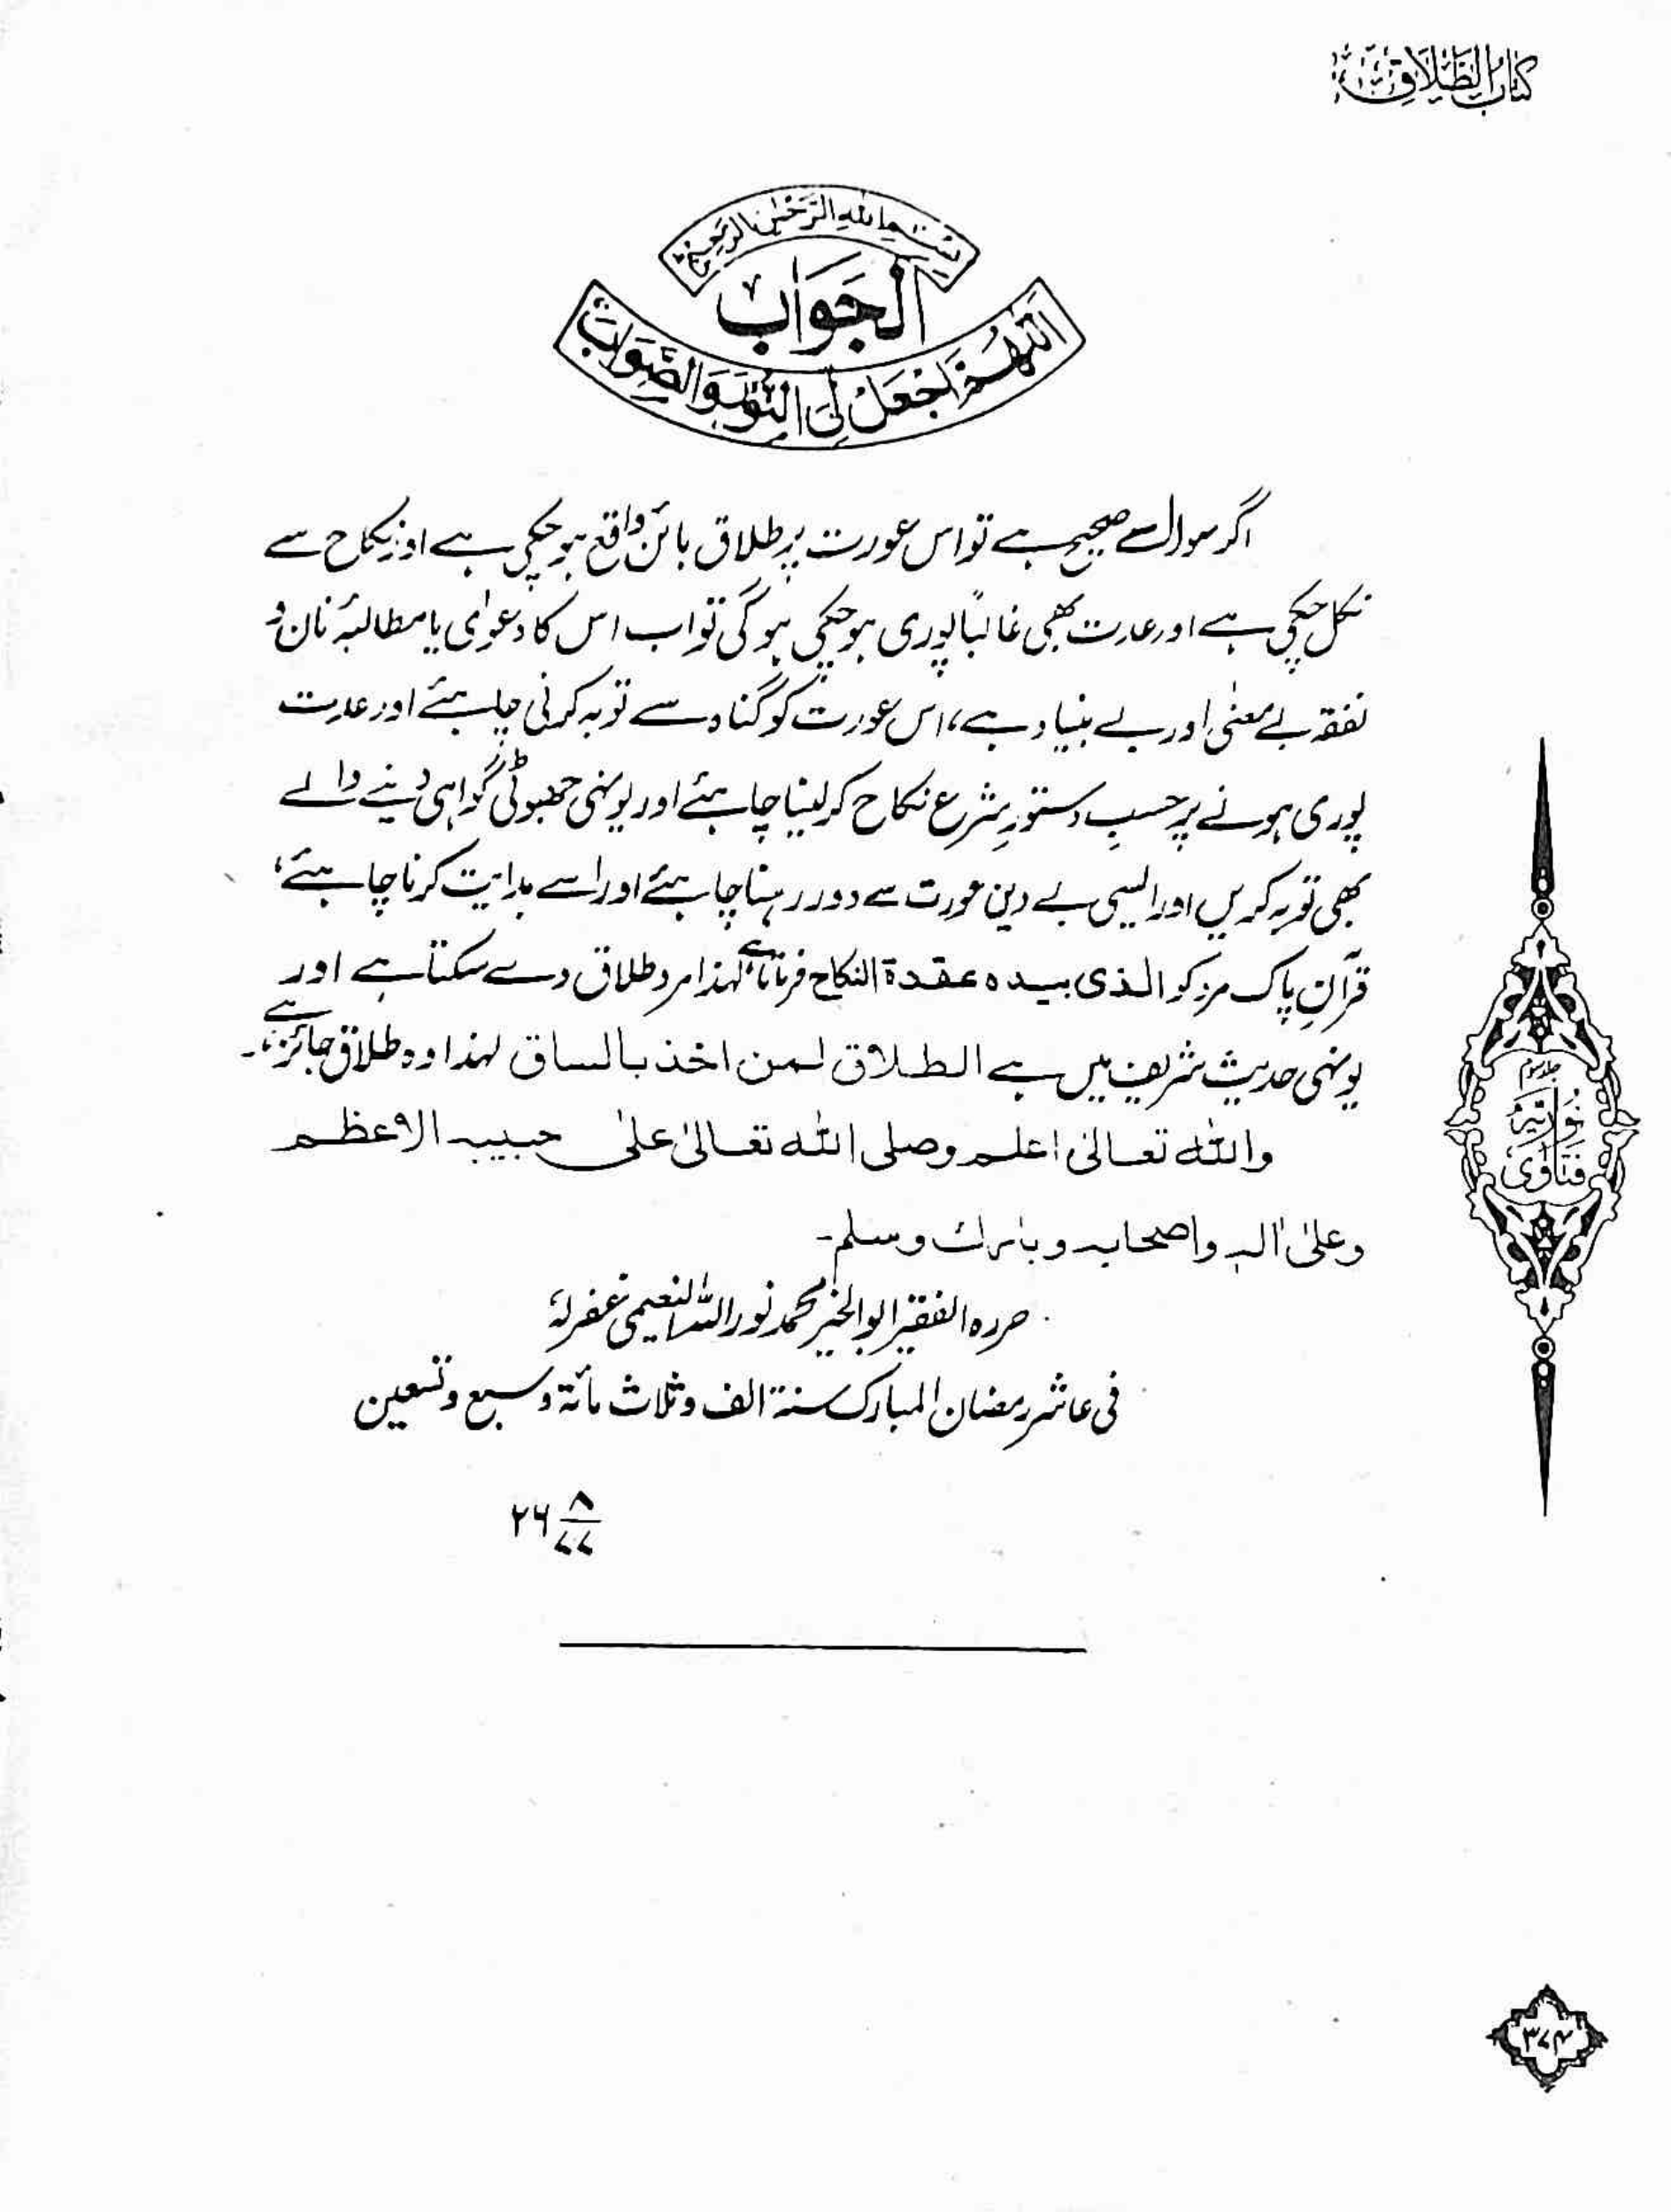 کتاب الطلاق
بسم الله الرحمن الرحيم
الجواب
اللهم اجعل لی النور والصواب
اگر سوال صحیح ہے تو اس عورت پر طلاق بائن واقع ہو چکی ہے اور نکاح سے
نکل چکی ہے اور عدت بھی غالباً پوری ہو چکی ہو گی تو اب اس کا دعوٰی یا مطالبۂ نان و
نفقہ بے معنٰی اور بے بنیاد ہے، اس عورت کو گناہ سے توبہ کرنی چاہئے اور عدت
پوری ہونے پر حسبِ دستورِ شرع نکاح کر لینا چاہئے اور یونہی جھوٹی گواہی دینے والے
بھی توبہ کریں اور ایسی بے دین عورت سے دور رہنا چاہئے اور اسے ہدایت کرنا چاہئے،
قرآنِ پاک مرد کو الذی بیدہ عقدة النکاح فرماتا ہے لہذا مرد طلاق دے سکتا ہے اور
یونہی حدیث شریف میں ہے الطلاق لمن اخذ بالساق لہذا وہ طلاق جائز ہے۔
والله تعالیٰ اعلم وصلی الله تعالیٰ علیٰ حبیبہ الاعظم
وعلیٰ اٰلہ واصحابہ وبارك وسلم۔
حررہ الفقیر ابوالخیر محمد نور اللہ النعیمی غفرلہ
فی عاشر رمضان المبارک سنة الف و ثلاث مائة و سبع و تسعین
۲۶ ۸/۷۷
جلد سوم
نوریہ
فتاوی
۳۷۴